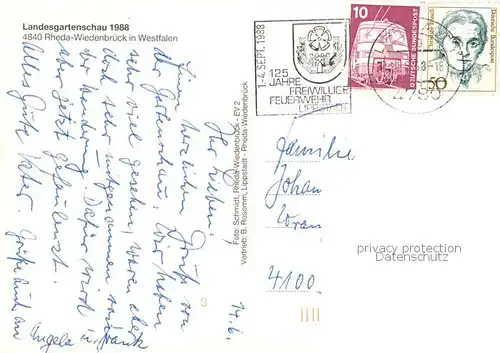 Landesgartenschau 1988
4840 Rheda-Wiedenbrück in Westfalen
Ihr Lieben!
herzlichen Gruß von
der Gartenschau. Wir haben
sehr viel gesehen, waren aber
auch sehr mitgenommen von
der Dafür wird
aber jetzt gefaulenzt.
Alles Gute Vater. Grüße auch an
Angela u. Frank
14.6.
Foto: Schmidt, Rheda-Wiedenbrück - EV 2
Vertrieb: B. Rosomm, Lippstadt - Rheda-Wiedenbrück
1.-4. SEPT. 1988
125
JAHRE
FREIWILLIGE
FEUERWEHR
LIPPSTADT
10
DEUTSCHE BUNDESPOST
Deutsche Bundespost
50
4780
Familie
Johan
4100
privacy protection
Datenschutz